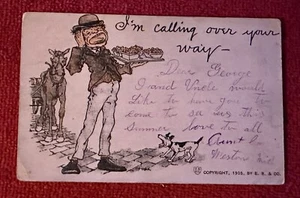 I'm calling over your
way—
Dear George
I and Uncle would
Like to have you to
come to see us this
Summer love to all
Aunt
Weston
COPYRIGHT, 1905, BY E. R. & CO.